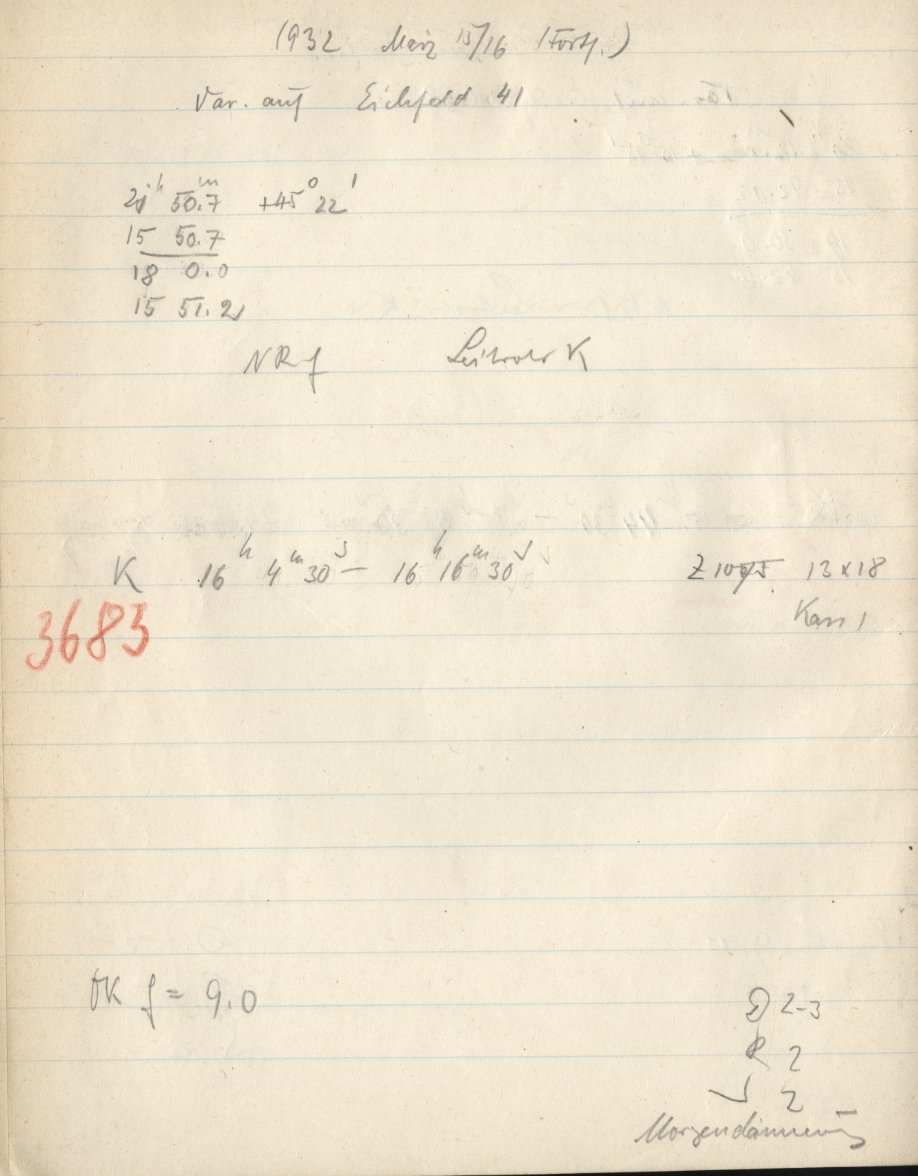 1932 März 15/16 (Forts.)
Var. auf Eichfeld 41
21ʰ 50.7ᵐ +45° 22'
15 50.7
18 0.0
15 51.2
NR f Leitrohr K
K 16ʰ 4ᵐ 30ˢ – 16ʰ 16ᵐ 30ˢ Z 1005 13x18
3683 Kass 1
OK f = 9.0
D 2-3
R 2
J 2
Morgendämmerung